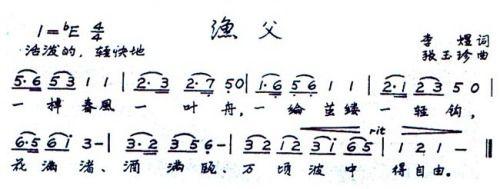 1=ᵇE 4/4 渔父 李煜词
活泼的，轻快地 张玉珍曲
5·6 5 3 1 1 | 2·3 2·7 5 0 | 1·6 5 6 1 1 | 2·1 2 3 5 0 |
一棹春風一叶舟，一纶茧缕一轻钩，
6·5 6 i 3 - | 3·2 3 5 6 - | 3 2 1 2 3 i 6 5 | 1 2 1 - ‖
rit
花满渚、酒满瓯、万顷波中得自由。